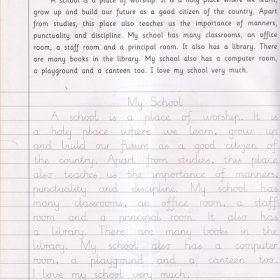 A school is a place of worship. It is a holy place where we learn,
grow up and build our future as a good citizen of the country. Apart
from studies, this place also teaches us the importance of manners,
punctuality and discipline. My school has many classrooms, an office
room, a staff room and a principal room. It also has a library. There
are many books in the library. My school also has a computer room,
a playground and a canteen too. I love my school very much.
My School
A school is a place of worship. It is
a holy place where we learn, grow up
and build our future as a good citizen of
the country. Apart from studies, this place
also teaches us the importance of manners,
punctuality and discipline. My school has
many classrooms, an office room, a staff
room and a principal room. It also has
a library. There are many books in the
library. My school also has a computer
room, a playground and a canteen too.
I love my school very much.